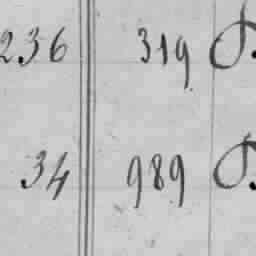 236 319
34 989